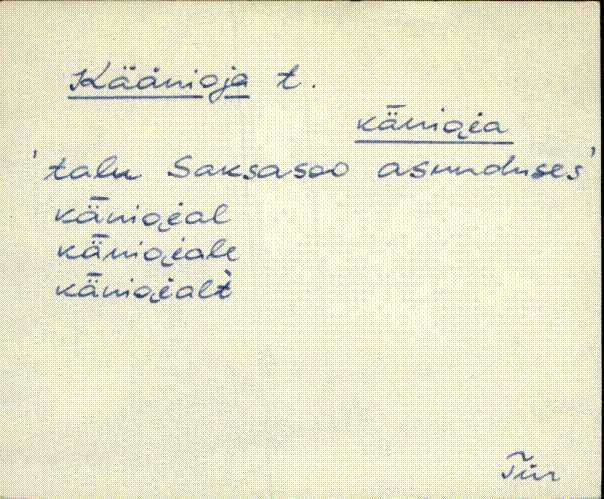 Käänioja t.
kǟnioi̯a
'talu Saksasoo asunduses'
kǟnioi̯al
kǟnioi̯ale
kǟnioi̯alt̀
Tür